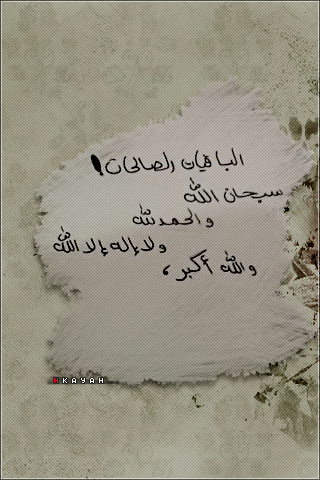 الباقيات الصالحات !
سبحان الله
والحمدلله
ولا إله إلا الله
والله أكبر ،
HKAYAH